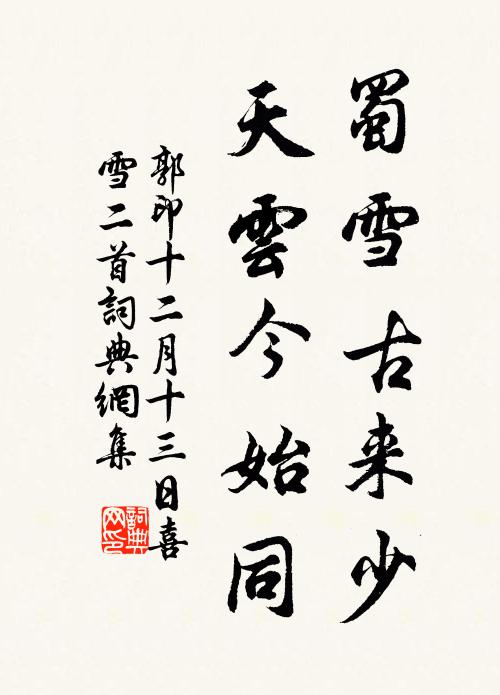 蜀雪古来少
天雲今始同
郭印十二月十三日喜
雪二首詞典網集
詞典
网印